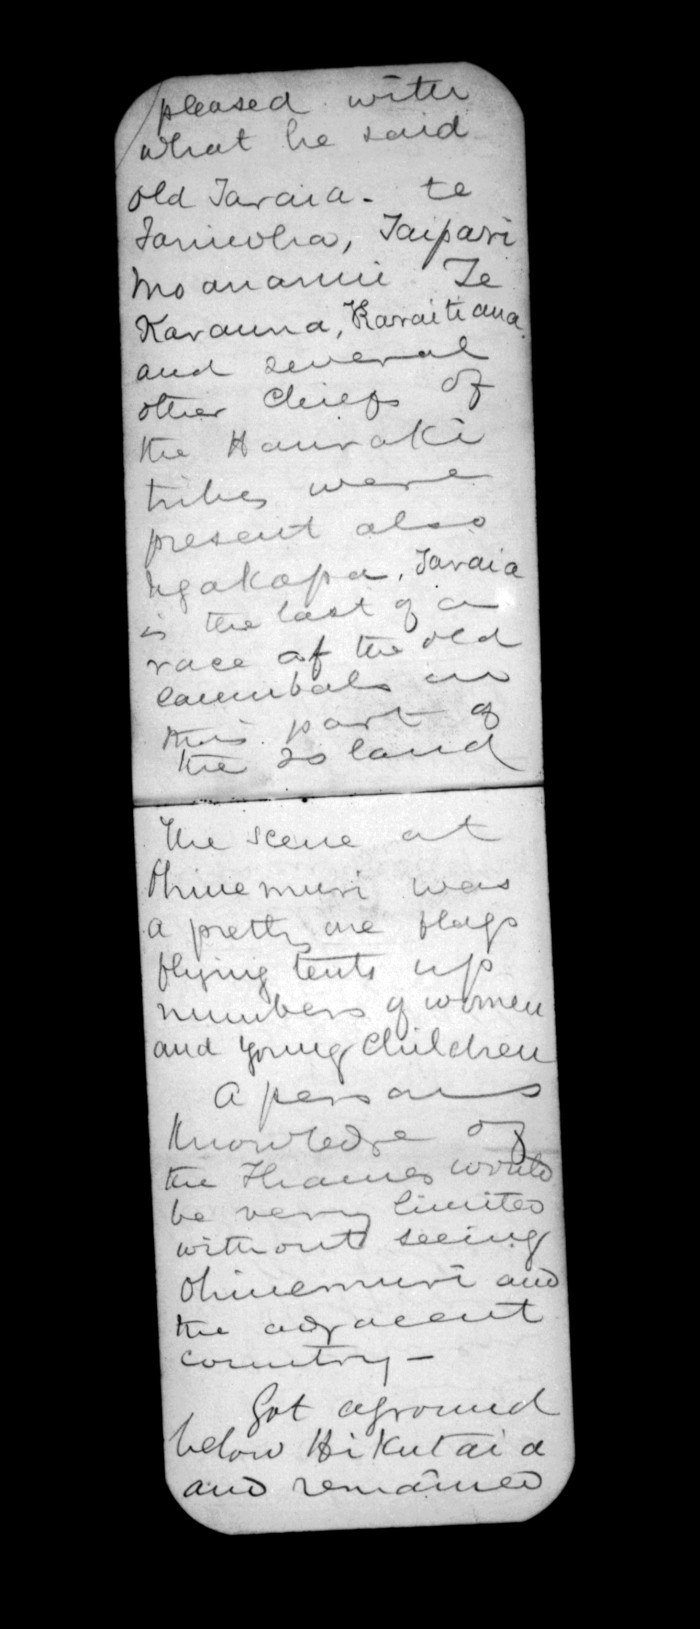 pleased with
what he said
old Taraia - te
Taniwha, Taipari
Moananui Te
Karauna, Karaitiana
and several
other chiefs of
the Hauraki
tribes were
present also
Ngakapa, Taraia
is the last of a
race of the old
cannibals in
this part of
the Island
The scene at
Ohinemuri was
a pretty one flags
flying tents up
numbers of women
and young children
A persons
knowledge of
the Thames would
be very limited
without seeing
Ohinemuri and
the adjacent
country -
Got aground
below Hikutaia
and remained